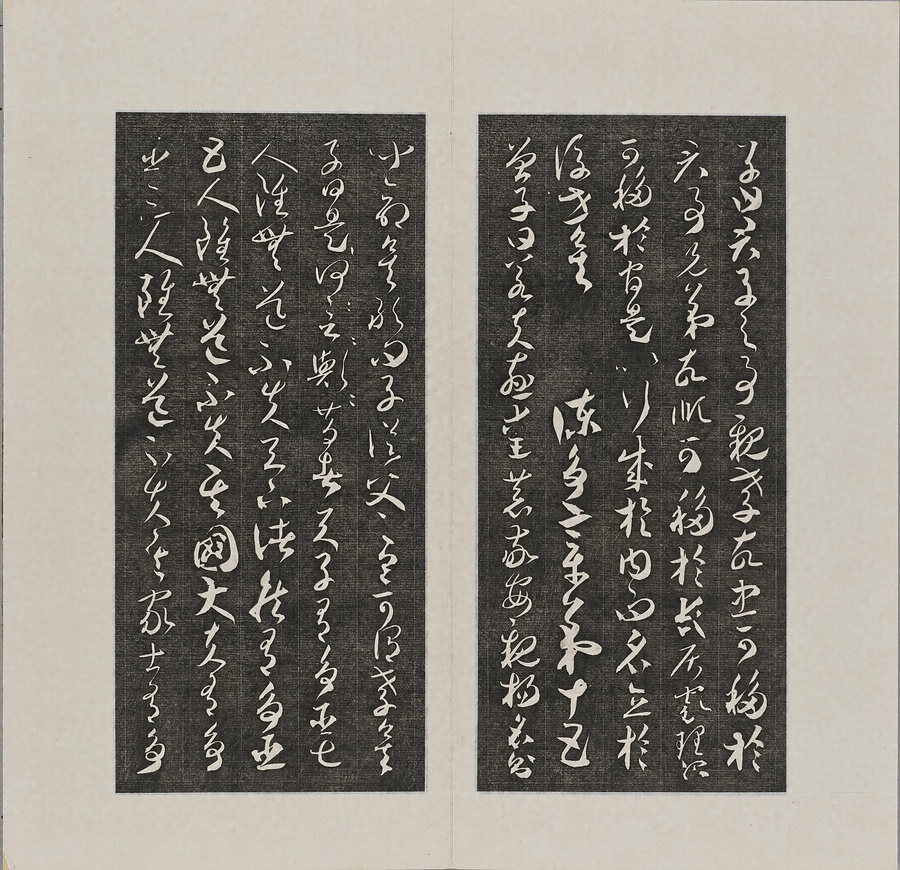 子曰君子之事親孝故忠可移於
君事兄弟故順可移於長居家理治
可移於官是以行成於內而名立於
後世矣
諫爭章第十五
曾子曰若夫慈愛恭敬安親揚名則
聞命矣敢問子從父之令可謂孝矣
子曰是々何々言々歟々昔者天子有爭臣七
人雖無道不失天下諸侯有爭臣
五人雖無道不失其國大夫有爭
臣三人雖無道不失其家士有爭